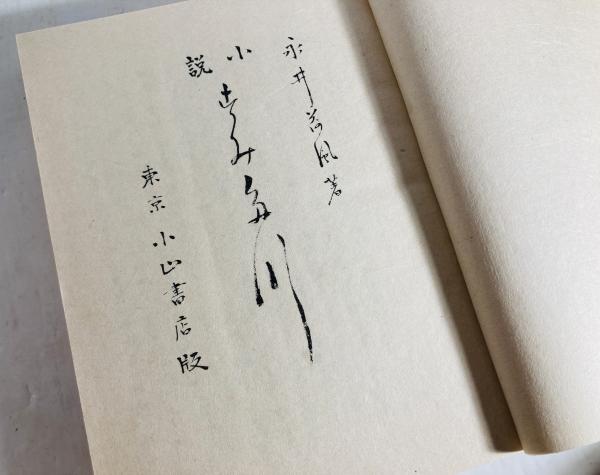 永井荷風著
小説
すみ多川
東京 小山書店版